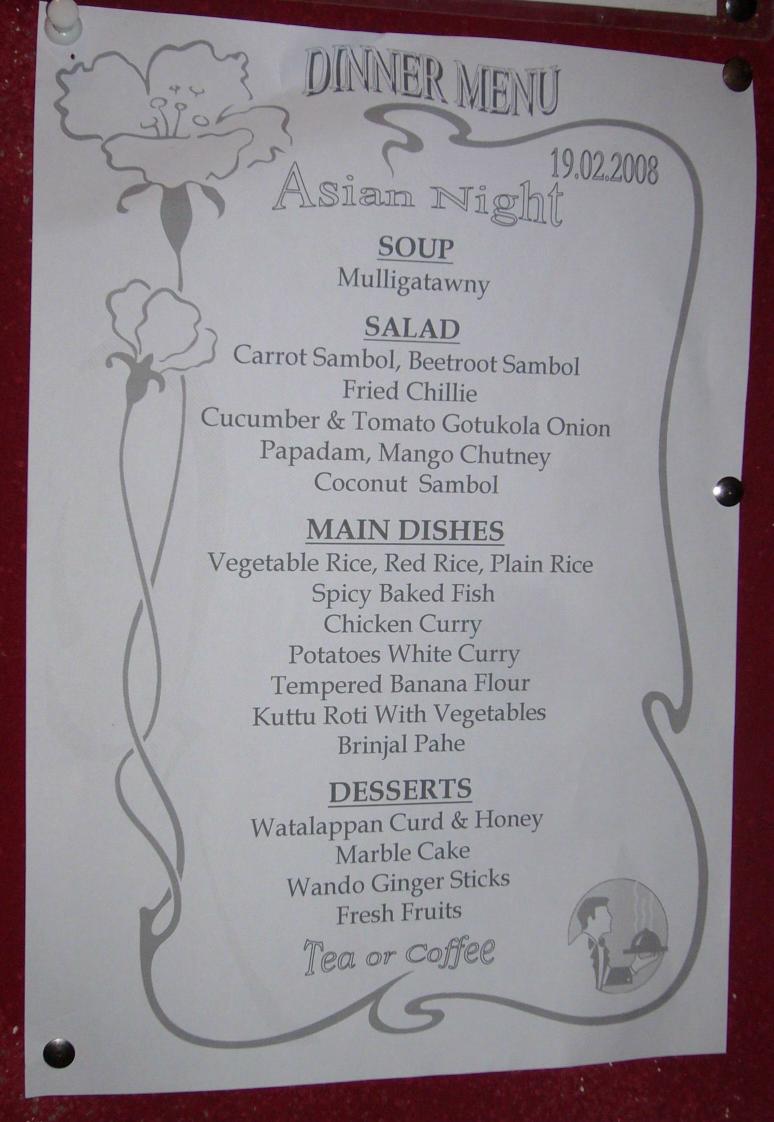 DINNER MENU
19.02.2008
Asian Night
SOUP
Mulligatawny
SALAD
Carrot Sambol, Beetroot Sambol
Fried Chillie
Cucumber & Tomato Gotukola Onion
Papadam, Mango Chutney
Coconut Sambol
MAIN DISHES
Vegetable Rice, Red Rice, Plain Rice
Spicy Baked Fish
Chicken Curry
Potatoes White Curry
Tempered Banana Flour
Kuttu Roti With Vegetables
Brinjal Pahe
DESSERTS
Watalappan Curd & Honey
Marble Cake
Wando Ginger Sticks
Fresh Fruits
Tea or Coffee